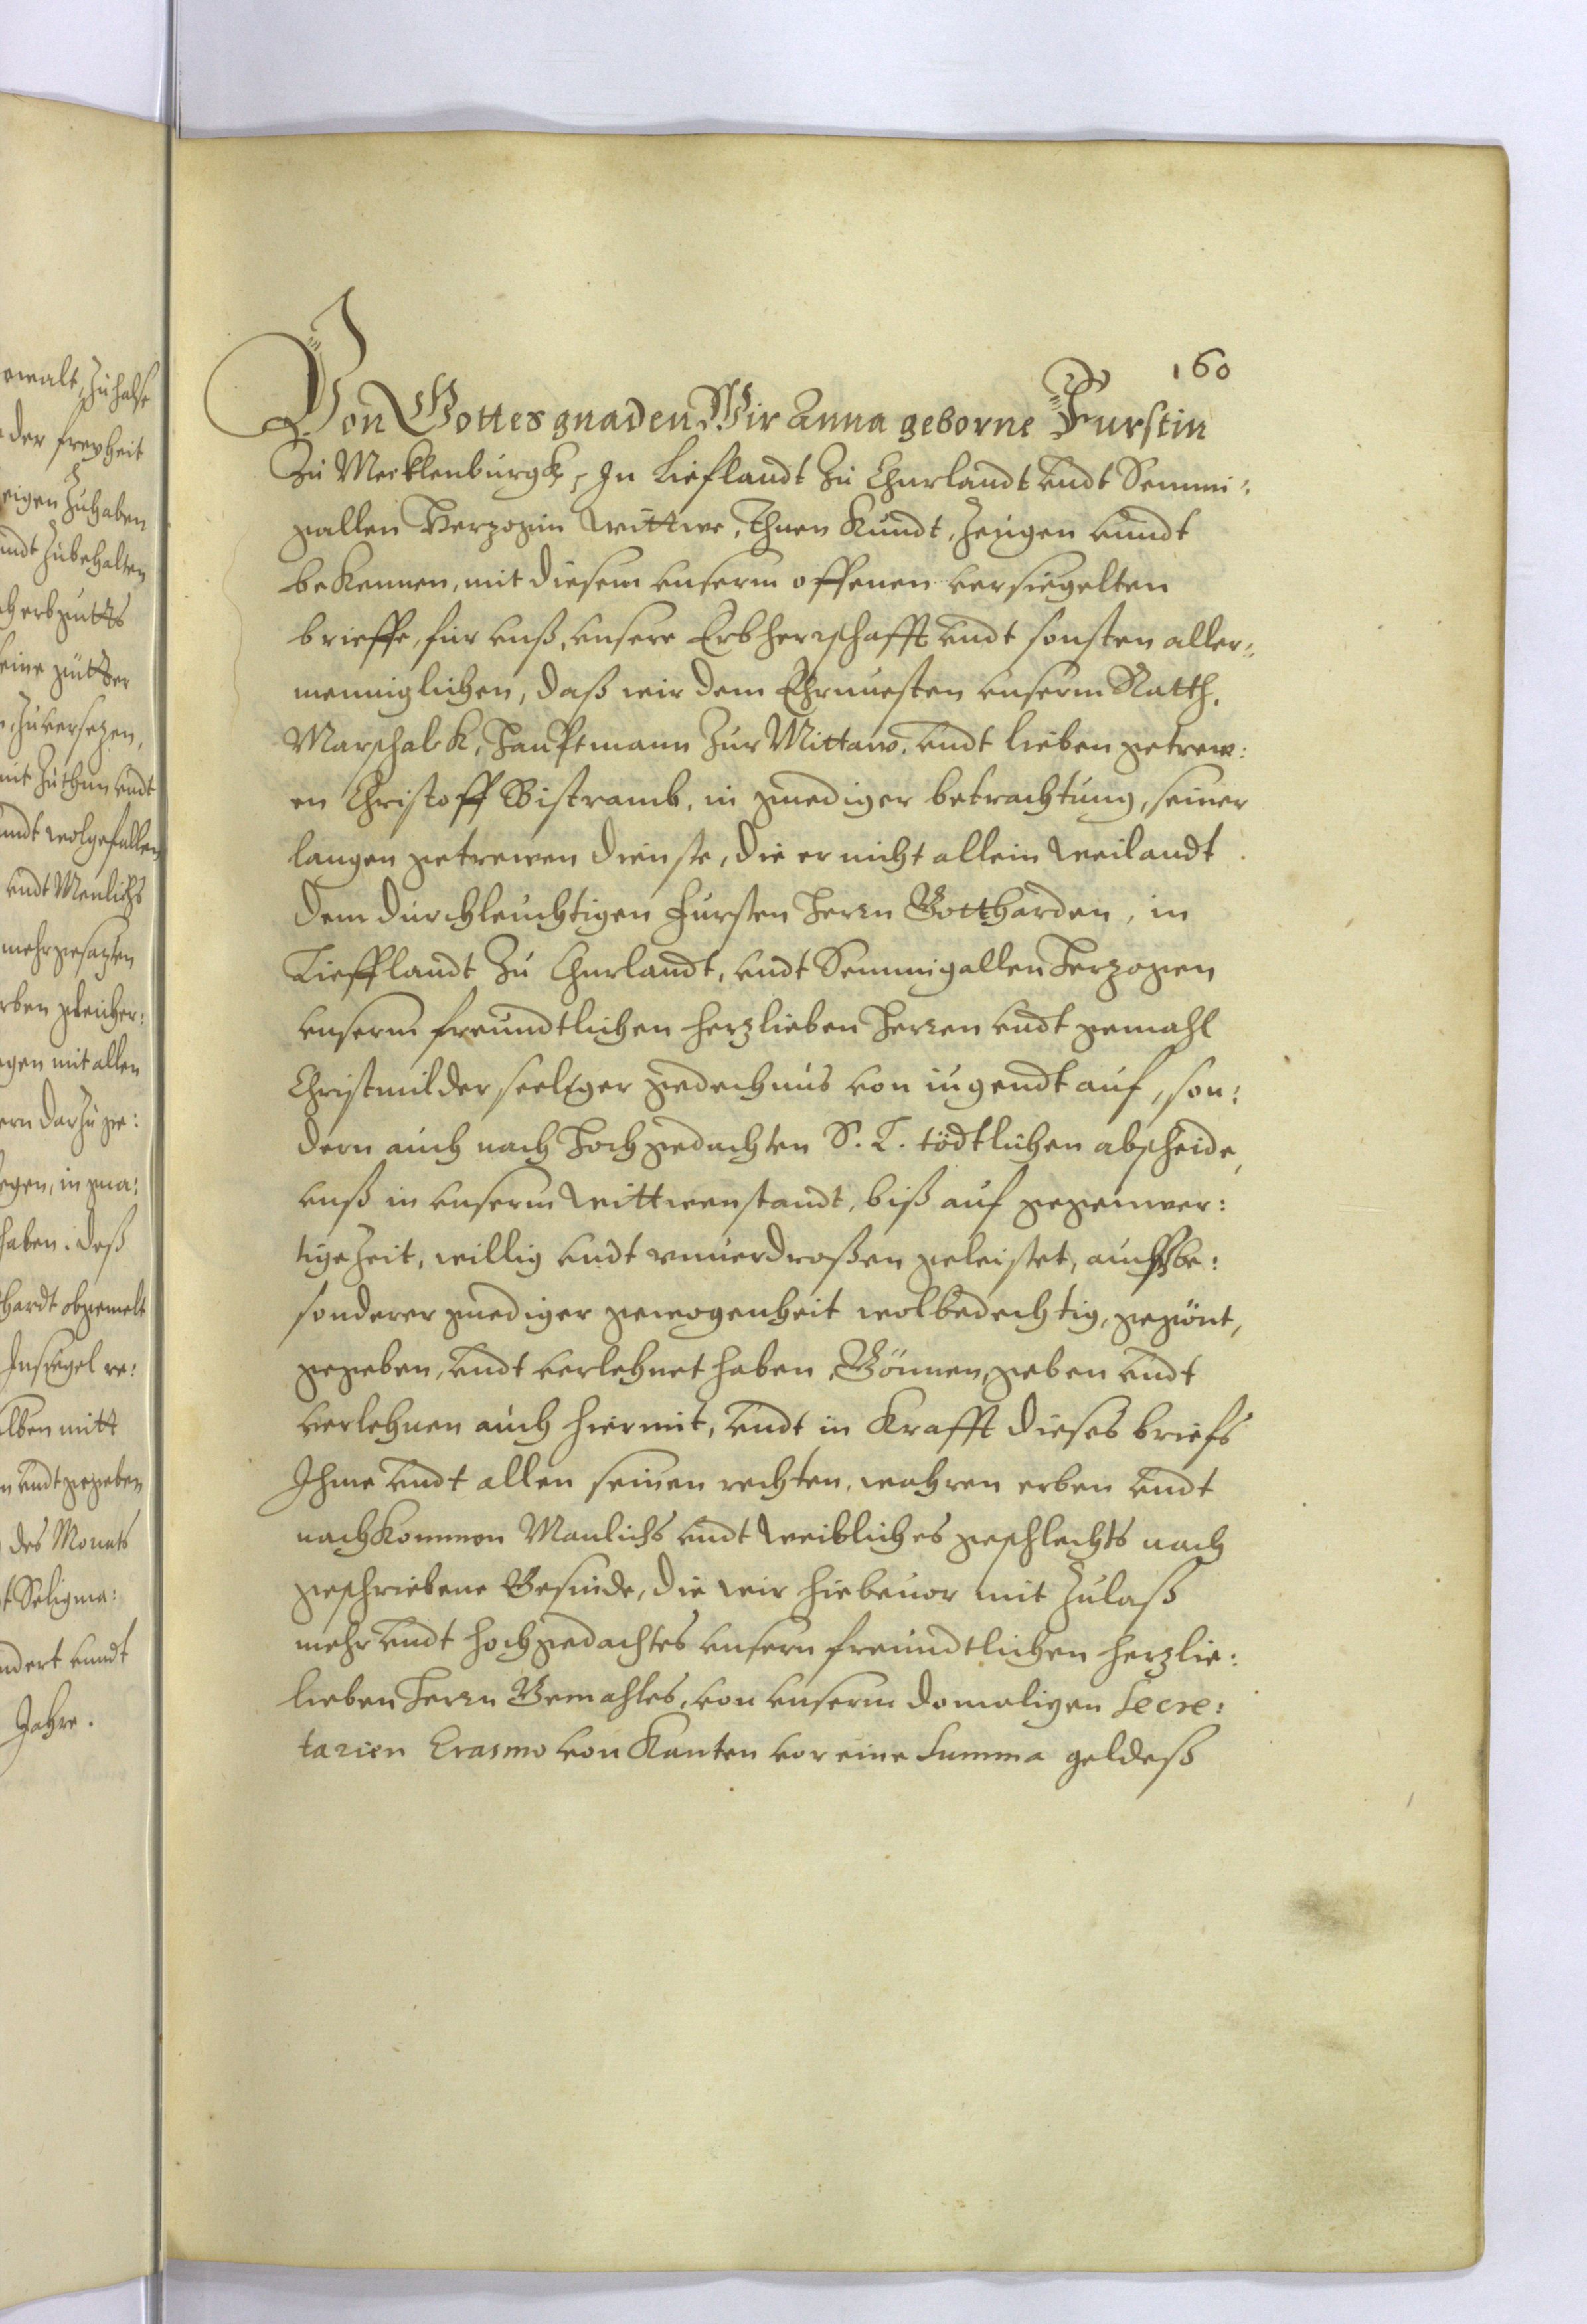 160
Von Gottes gnaden Wir Anna geborne Furstin
Zu Mecklenburgk, In Lieflandt Zu Churlandt undt Semmi:
gallen Herzogin Wittwe, Thuen Kundt, Zeigen unndt
bekennen, mit diesem unserm offenen versiegelten
brieffe, für unß, unsere Erbherrschafft undt sonsten aller:
menniglichen, daß wir dem Ehrnuesten unserm Ratth,
Marschalck, Hauptmann Zur Mittaw, undt lieben getrew:
en Christoff Bistramb, in gnediger betrachtung, seiner
langen getrewen dienste, die er nicht allein Weilandt
dem durchleuchtigen Fursten Herrn Gottharden, in
Liefflandt Zu Churlandt, undt Semmigallen Herzogen
unserm freundtlichen herzlieben Herren undt gemahl
Christmilder seeliger gedechnus von iugendt auf, son:
dern auch nach Hochgedachten S. L. tödtlichen abscheide,
unß in unserm Wittwenstandt, biß auf gegenwer:
tige Zeit, willig undt unuerdroßen geleistet, auß be:
sonderer gnediger gewogenheit wolbedechtig, gegönt,
gegeben, undt verlehnet haben, Gönnen, geben undt
verlehnen auch hiermit, undt in Krafft dieses briefs
Ihme undt allen seinen rechten, wahren erben undt
nachkommen Manlichs undt Weibliches geschlechts nach
geschriebene Gesinde, die wir hiebeuor mit Zulaß
mehr undt hochgedachtes unsern freundtlichen herzlie:
lieben Herrn Gemahles, von unserm domaligen Secre:
tarien Erasmo von Kanten vor eine Summa geldeß
ewalt, Zu halse
der freyheit
eigen Zuhaben
undt Zubehalten
ch erbgutts
seine gütter
Zuversezen,
mit Zuthun undt
undt wolgefallen
undt Menlichs
mehrgesagten
rben gleicher:
gen mit allen
ern darzu ge:
egen, in gna:
haben. deß
hardt obgemelt
Insiegel re:
lben mitt
n undt gegeben
des Monats
t Seligma:
ndert unndt
Jahre.